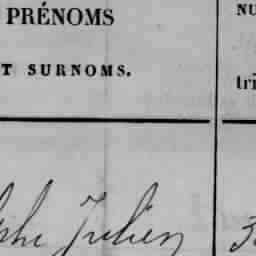 PRÉNOMS
T SURNOMS.
NU
tri
Julien